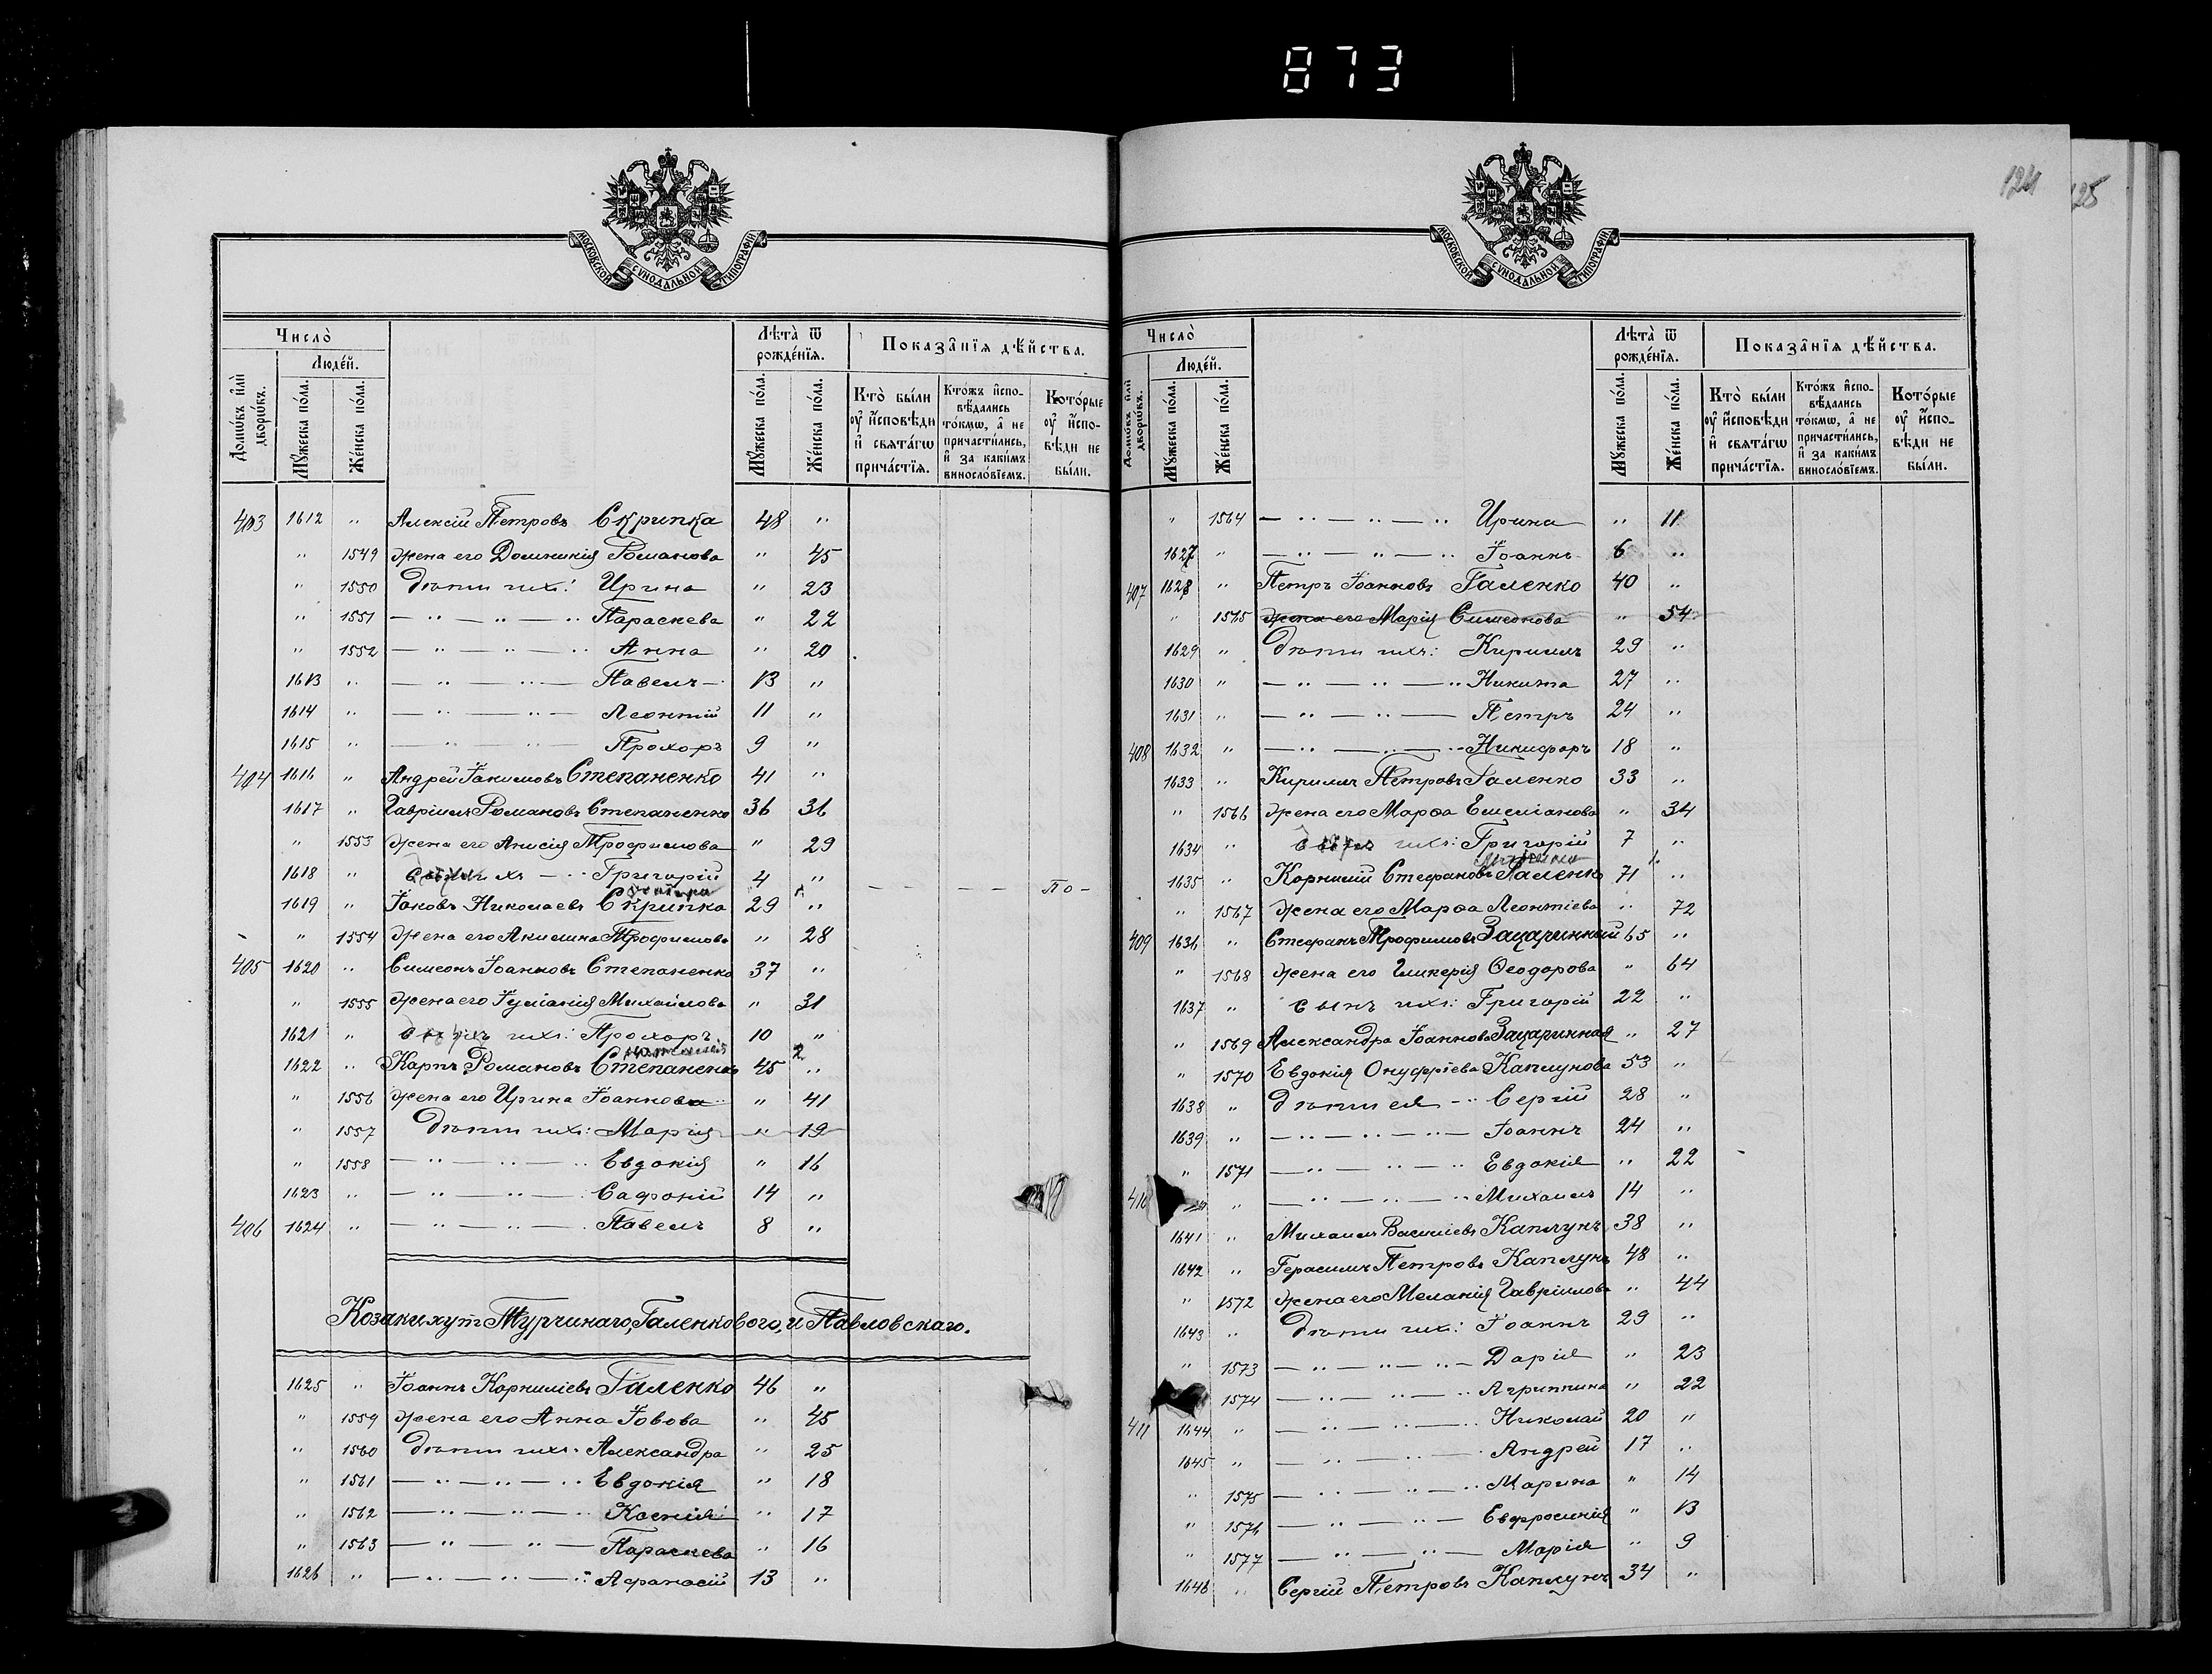 873
124
125
МОСКОВСКОЙ СѴНОДАЛЬНОЙ ТИПОГРАФІИ
Число̀
Людей.
Домѡвъ и҆лѝ дворѡвъ.
Мꙋжеска пола.
Женска пола.
Лѣта̀ ѿ рожденїѧ.
Мꙋжеска пола.
Женска пола.
Показанїѧ дѣйства.
Кто̀ были ᲂу҆ и҆сповѣди и҆ свѧтагѡ причастїѧ.
Ктожъ и҆сповѣдались токмѡ, а҆ не причастились, и҆ за какимъ винословїемъ.
Которые ᲂу҆ и҆сповѣди не были.
403 1612 " Алексій Петровъ Скрипка 48 "
" 1549 жена его Домникія Романова " 45
" 1550 дѣти ихъ: Ирина " 23
" 1551 — " — " — Параскева " 22
" 1552 — " — " — " Анна " 20
1613 " — " — " — Павелъ — 13 "
1614 " — " — " — Леонтій 11 "
1615 " — " — " — Прохоръ 9 "
404 1616 " Андрей Іакимовъ Степаненко 41 "
1617 " Гавріилъ Романовъ Степаненко 36 36
" 1553 жена его Анисія Трофимова " 29
1618 " ихъ — " Григорій 4 "
1619 " Іаковъ Николаевъ Скрипка 29 " — — — — По-
" 1554 жена его Акилина Трофимова " 28
405 1620 " Симеонъ Іоанновъ Степаненко 37 "
" 1555 жена его Іуліанія Михайлова " 31
1621 " сынъ ихъ: Прохоръ 10 "
1622 " Карпъ Романовъ Степаненко 45 2 "
" 1556 жена его Ирина Іоаннова " 41
" 1557 дѣти ихъ: Марія " 19
" 1558 — " — " — " Евдокія " 16
1623 " — " — " — Сафоній 14 "
406 1624 " — " — " — Павелъ 8 "
Козаки хут Турчинаго, Галенкового, и Павловскаго.
1625 " Іоаннъ Корниліевъ Галенко 46 "
" 1559 жена его Анна Іовова " 45
" 1560 дѣти ихъ: Александра " 25
" 1561 — " — " — " Евдокія " 18
" 1562 — " — " — " Ксенія " 17
" 1563 — " — " — Параскева " 16
1626 " — " — " — " Афанасій 13 "
МОСКОВСКОЙ СѴНОДАЛЬНОЙ ТИПОГРАФІИ
Число̀
Людей.
Домѡвъ и҆лѝ дворѡвъ.
Мꙋжеска пола.
Женска пола.
Лѣта̀ ѿ рожденїѧ.
Мꙋжеска пола.
Женска пола.
Показанїѧ дѣйства.
Кто̀ были ᲂу҆ и҆сповѣди и҆ свѧтагѡ причастїѧ.
Ктожъ и҆сповѣдались токмѡ, а҆ не причастились, и҆ за какимъ винословїемъ.
Которые ᲂу҆ и҆сповѣди не были.
" 1564 — " — " — " Ирина " 11
1627 " — " — " — " Іоаннъ 6 "
407 1628 " Петръ Іоанновъ Галенко 40 "
" 1565 жена его Марія Симеонова " 54
1629 " дѣти ихъ: Кириллъ 29 "
1630 " — " — " — " Никита 27 "
1631 " — " — " — Петръ 24 "
408 1632 " — " — " — " Никифоръ 18 "
1633 " Кириллъ Петровъ Галенко 33 "
" 1566 жена его Марѳа Емеліанова " 34
1634 " ихъ: Григорій 7 "
1635 " Корнилій Стефановъ Галенко 71 "
" 1567 жена его Марѳа Леонтіева " 72
409 1636 " Стефанъ Трофимовъ Зацаринный 65 "
" 1568 жена его Гликерія Ѳеодорова " 64
1637 " сынъ ихъ: Григорій 22 "
" 1569 Александра Іоаннова Зацаринная " 27
" 1570 Евдокія Онуфріева Каплунова 53 "
1638 " дѣти ея — " Сергій 28 "
1639 " — " — " — " — Іоаннъ 24 "
" 1571 — " — " — " Евдокія " 22
410 " — " — " — " Михаилъ 14 "
1641 " Михаилъ Василіевъ Каплунъ 38 "
1642 " Герасимъ Петровъ Каплунъ 48 "
" 1572 жена его Меланія Гавріилова " 44
1643 " дѣти ихъ: Іоаннъ 29 "
" 1573 — " — " — " — Дарія " 23
1574 — " — " — " Агриппина " 22
411 1644 " — " — " — " Николай 20 "
1645 " — " — " — " Андрей 17 "
" 1575 — " — " — " Марина " 14
" 1576 — " — " — Евфросинія " 13
" 1577 — " — " — Марія " 9
1646 " Сергій Петровъ Каплунъ 34 "